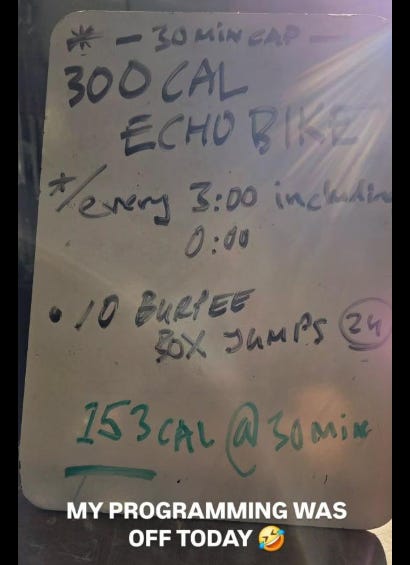 * - 30 MIN CAP -
300 CAL
ECHO BIKE
*/every 3:00 includin
0:00
• 10 BURPEE
BOX JUMPS 24
153 CAL @ 30 MIN
MY PROGRAMMING WAS
OFF TODAY 🤣